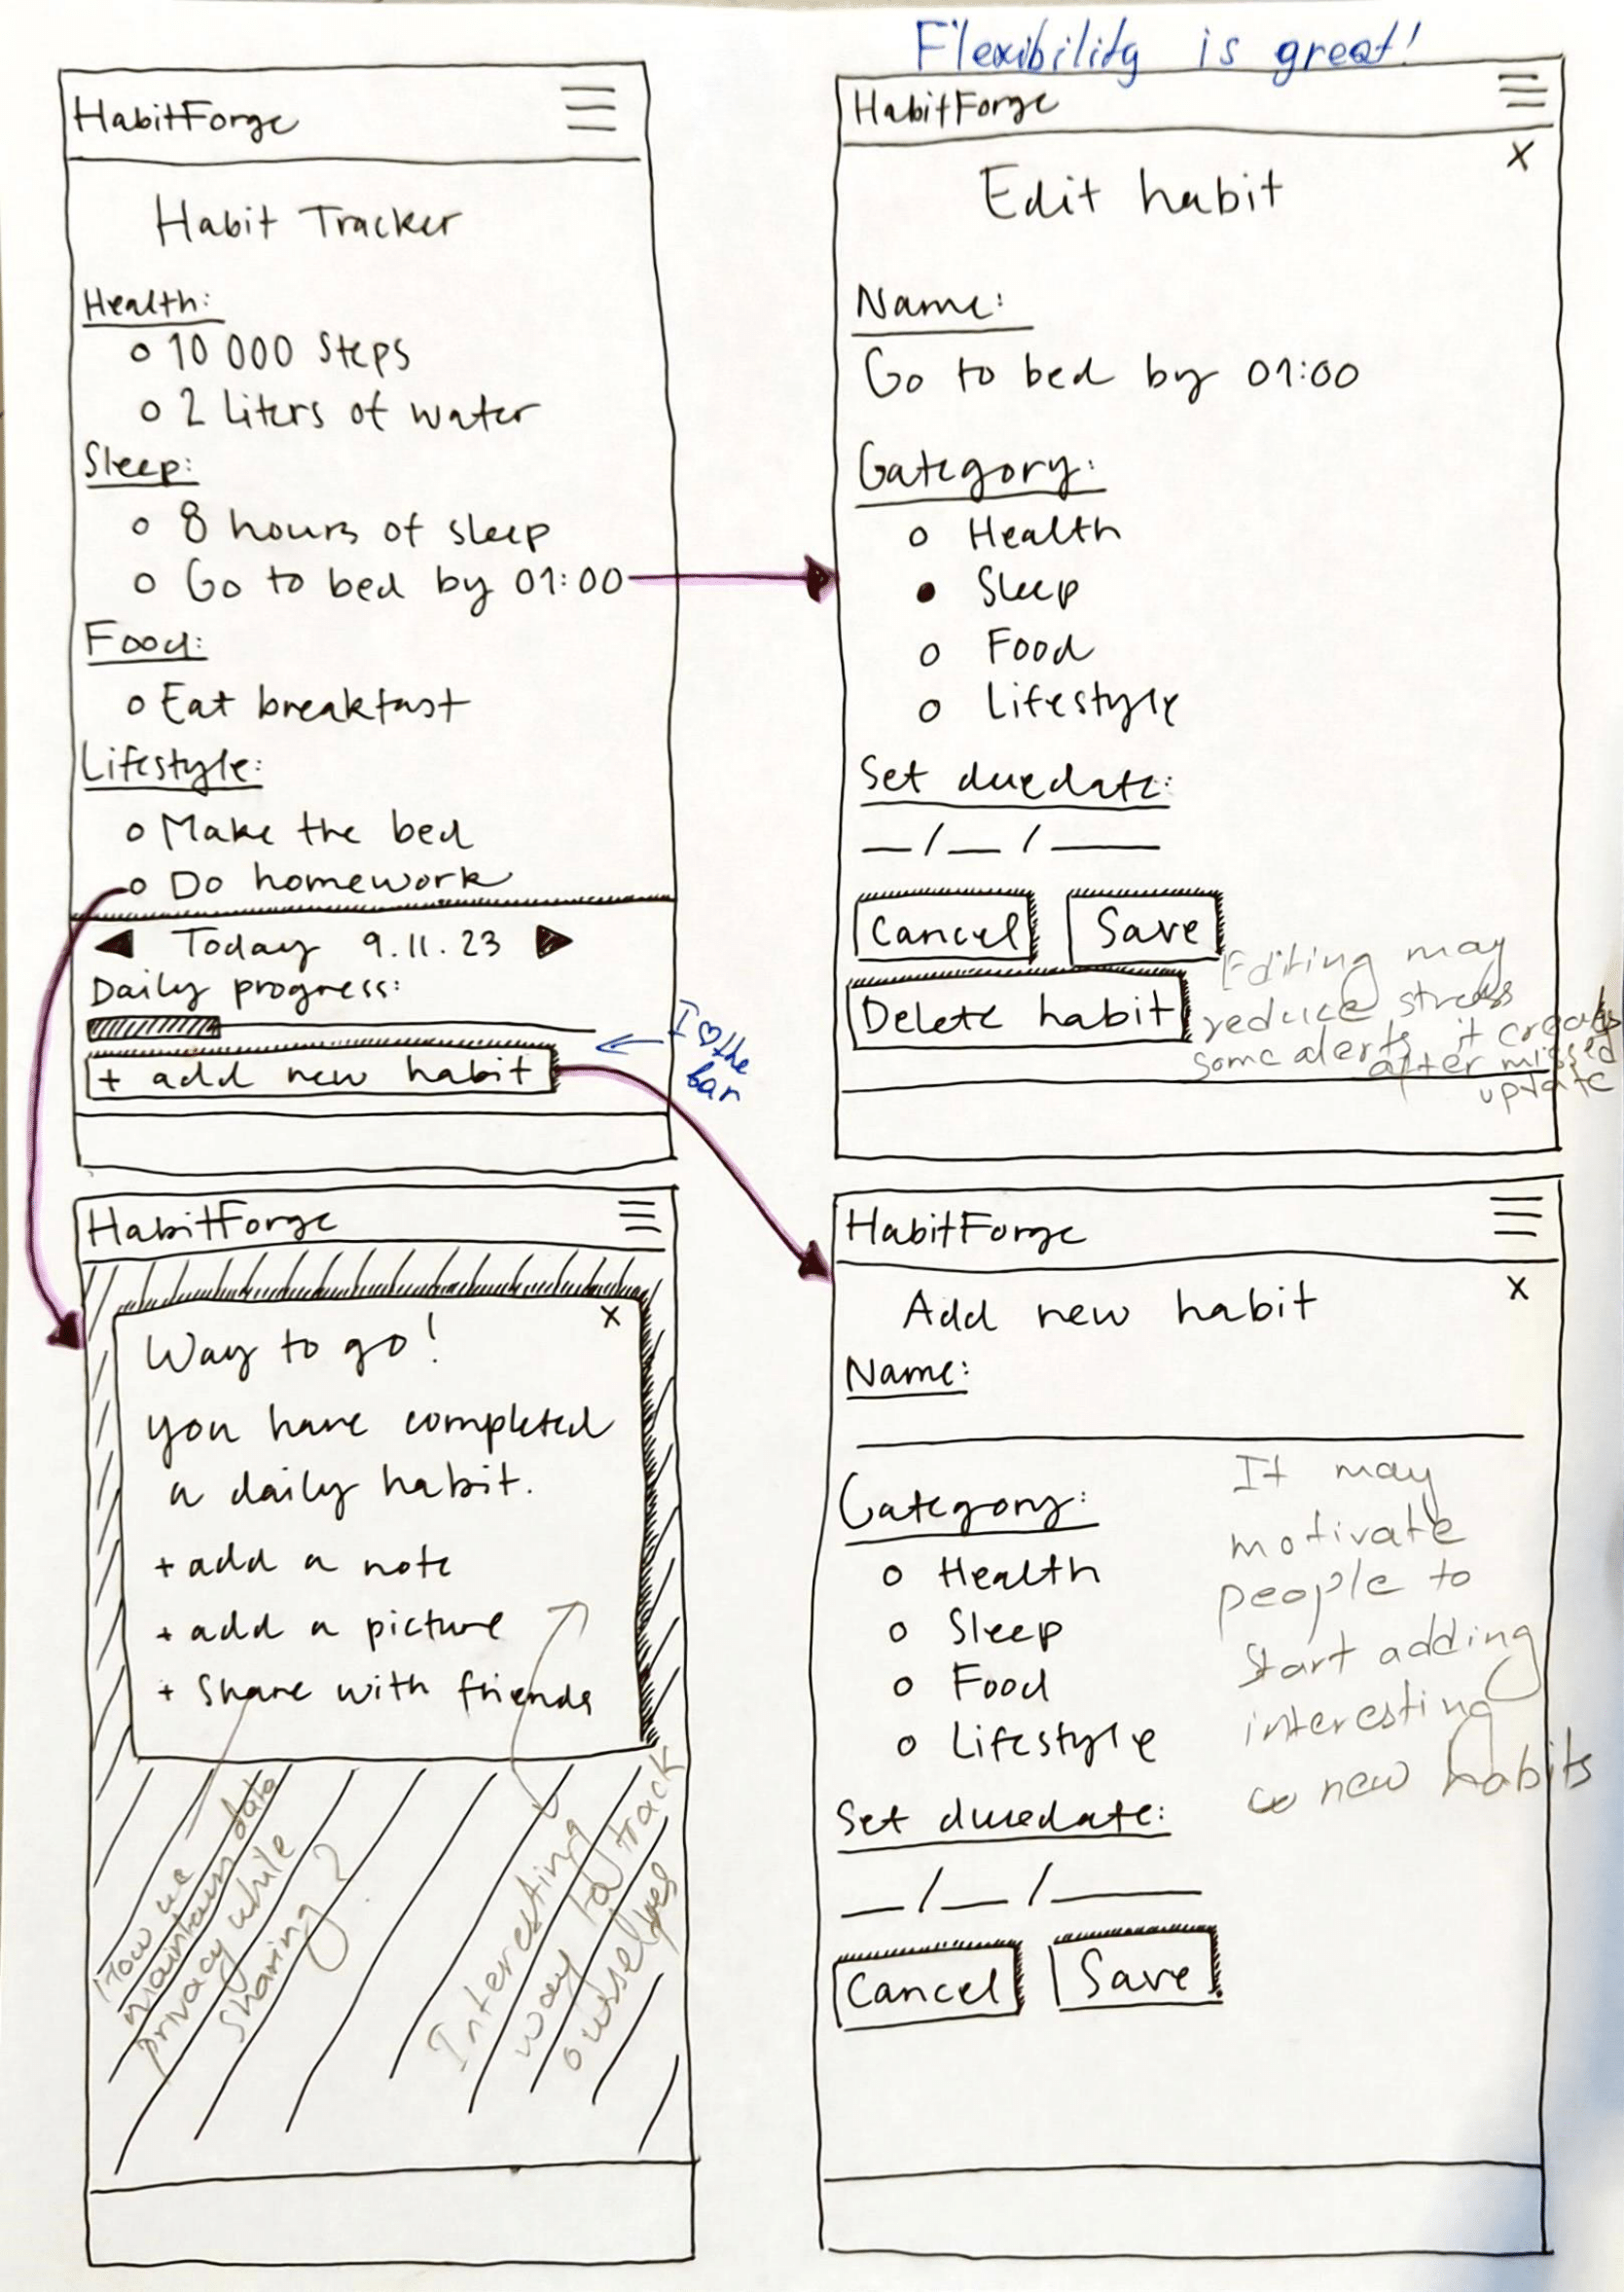 Flexibility is great!
HabitForge
Habit Tracker
Health:
10 000 steps
2 liters of water
Sleep:
8 hours of sleep
Go to bed by 01:00
Food:
Eat breakfast
Lifestyle:
Make the bed
Do homework
Today 9.11.23
Daily progress:
+ add new habit
I ♡ the
bar
HabitForge
x
Edit habit
Name:
Go to bed by 01:00
Category:
Health
Sleep
Food
Lifestyle
Set duedate:
__/__/____
Cancel
Save
Delete habit
Editing may
reduce stress
some alerts it creates
after missed
update
HabitForge
x
Way to go!
you have completed
a daily habit.
+ add a note
+ add a picture
+ Share with friends
How we
maintain data
privacy while
sharing?
Interesting
way to track
ourselves
HabitForge
x
Add new habit
Name:
Category:
Health
Sleep
Food
Lifestyle
Set duedate:
__/__/____
Cancel
Save
It may
motivate
people to
start adding
interesting
new habits